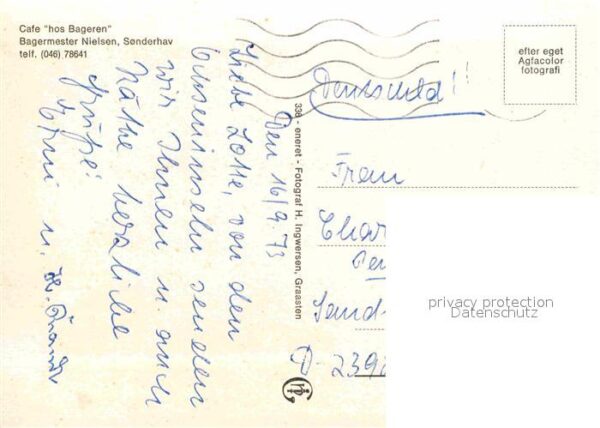 Cafe "hos Bageren"
Bagermester Nielsen, Sønderhav
telf. (046) 78641
Den 16/9. 73
Liebe Lotte, von den
Ochseninseln senden
wir Ihnen u. auch
Käthe herzliche
Grüße!
Erni u. H.
338 - eneret - Fotograf H. Ingwersen, Graasten
efter eget
Agfacolor
fotografi
Deutschld!
Frau
Char
Sand-
D-239
privacy protection
Datenschutz